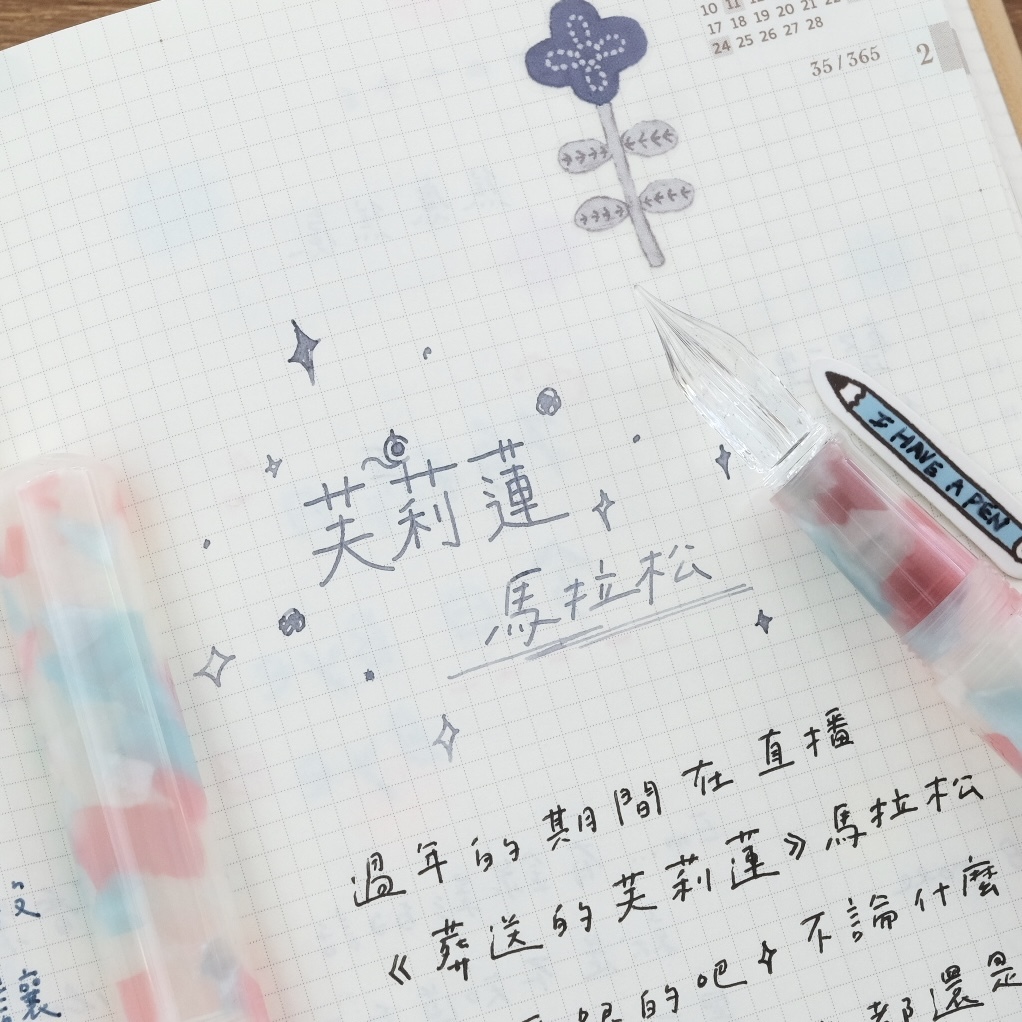 10 11
17 18 19 20 21 22
24 25 26 27 28
35 / 365
2
I HAVE A PEN
芙莉蓮
馬拉松
過年的期間在直播
《葬送的芙莉蓮》馬拉松
的吧 不論什麼
都還是